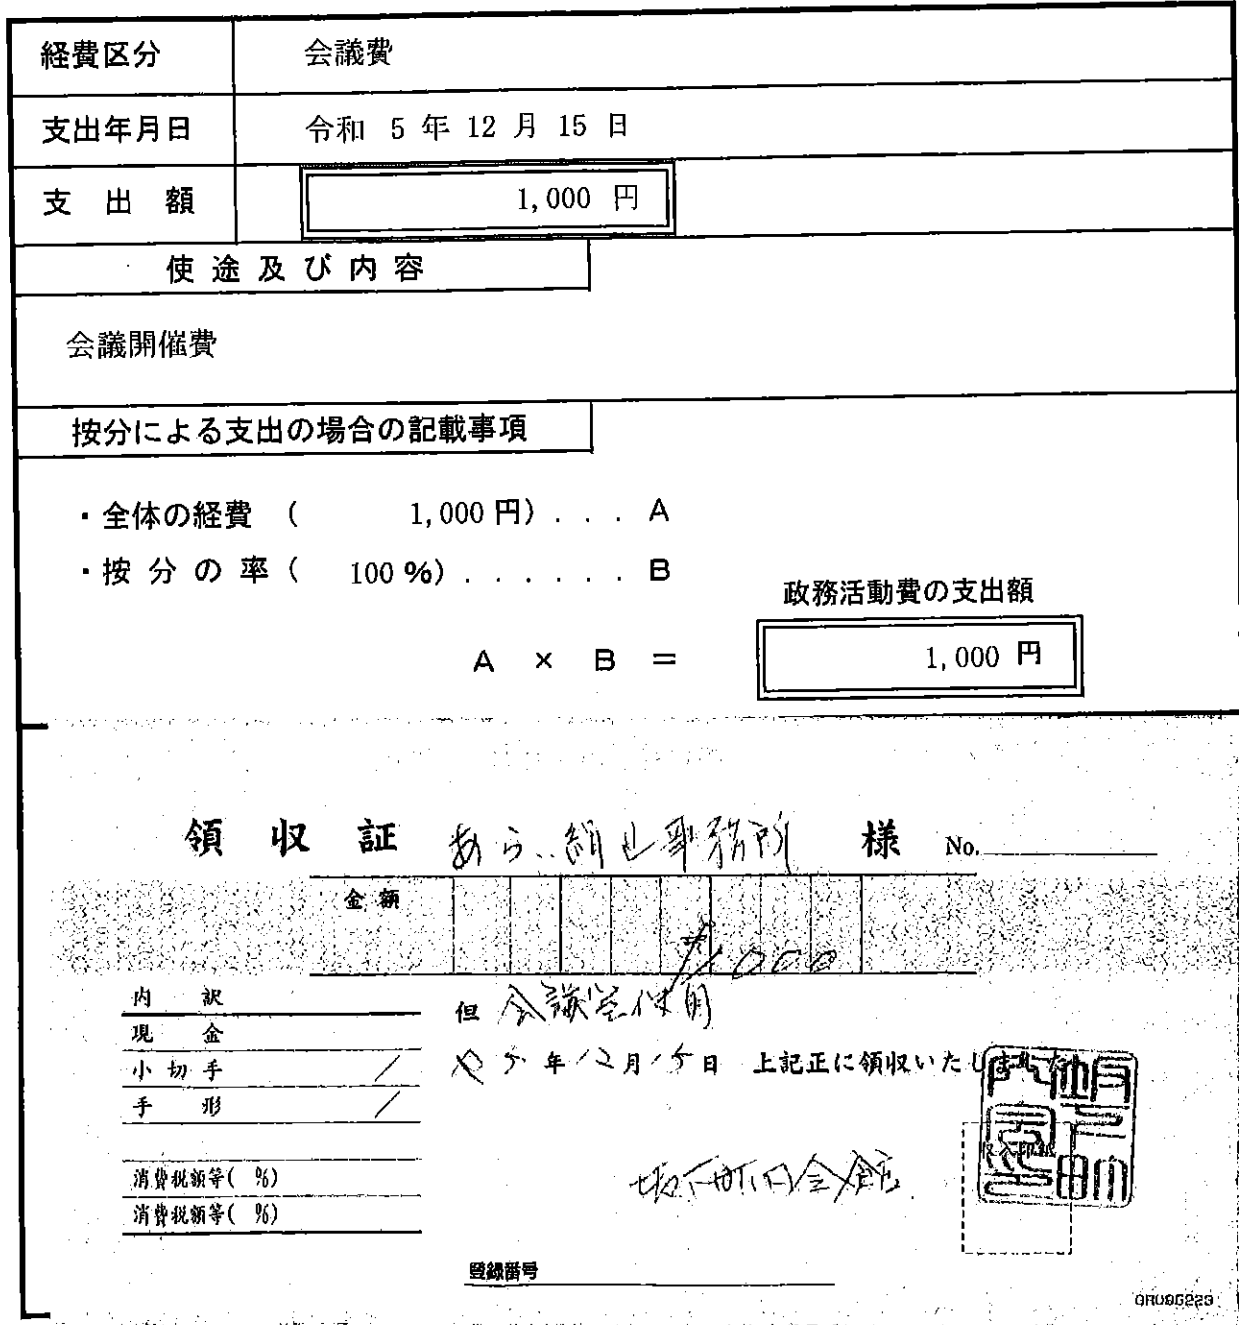 経費区分 会議費
支出年月日 令和 5 年 12 月 15 日
支出額 1,000 円
使途及び内容
会議開催費
按分による支出の場合の記載事項
・全体の経費 ( 1,000 円) . . . A
・按分の率 ( 100 %) . . . . . . . B
政務活動費の支出額
A × B = 1,000 円
領収証 あら 絹世事務所 様 No.
金額 ¥1,000
内訳 但 会議室使用
現金
小切手 R5年12月15日 上記正に領収いたしました
手形
収入印紙
消費税額等( %) 町内会館
消費税額等( %)
登録番号